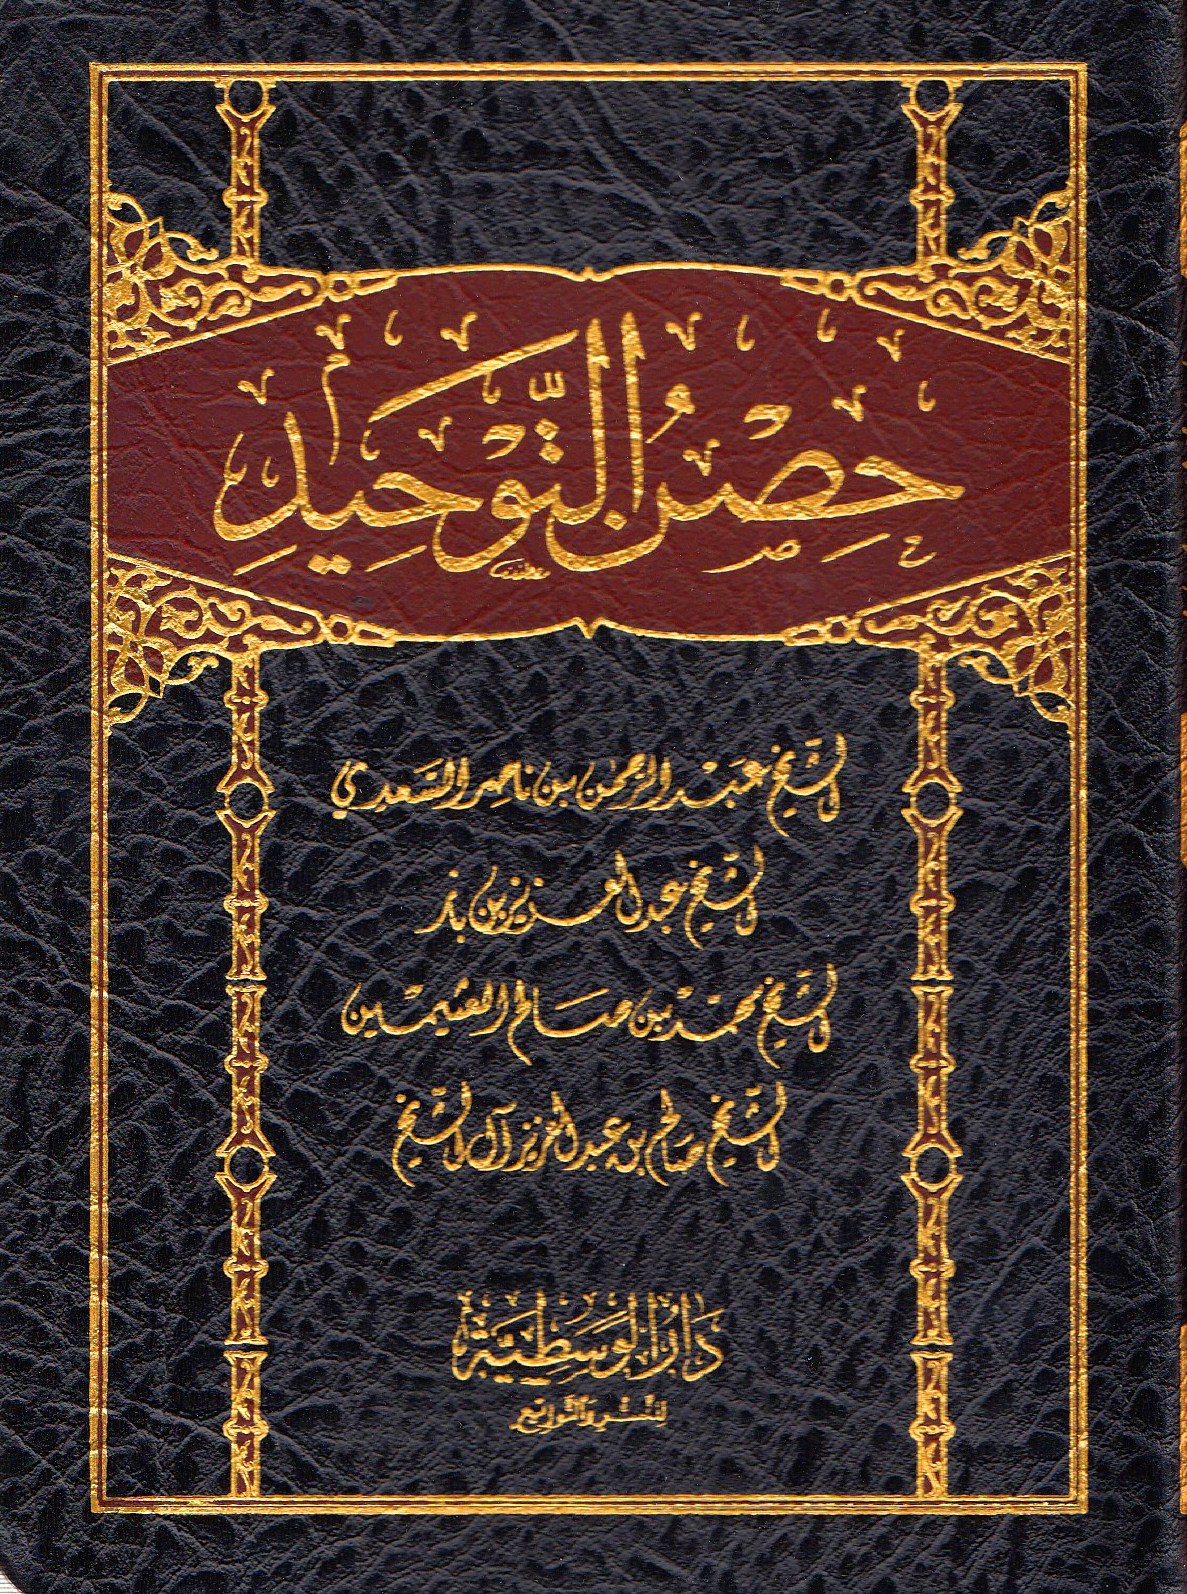 حِصْنُ التَّوْحِيدِ
الشيخ عبد الرحمن بن ناصر السعدي
الشيخ عبد العزيز بن باز
الشيخ محمد بن صالح العثيمين
الشيخ صالح بن عبد العزيز آل الشيخ
دار الوسطية
للنشر والتوزيع